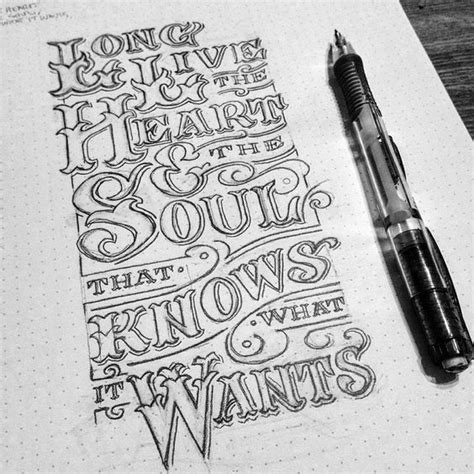 LONG
LIVE
THE
HEART
& THE
SOUL
THAT
KNOWS
WHAT
IT WANTS